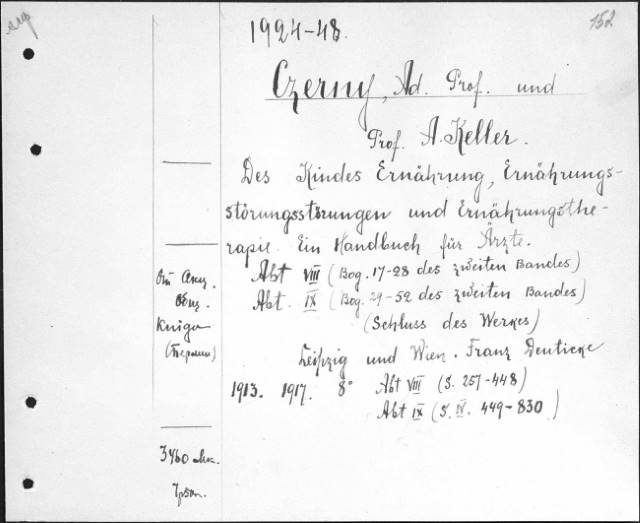 1924-48.
152
Czerny, Ad. Prof. und
Prof. A. Keller.
Des Kindes Ernährung, Ernährungs-
störungsstörungen und Ernährungsthe-
rapie. Ein Handbuch für Ärzte.
Abt VIII (Bog. 17-28 des zweiten Bandes)
Abt. IX (Bog. 29-52 des zweiten Bandes)
(Schluss des Werkes)
Leipzig und Wien. Franz Deuticke
1913. 1917. 8° Abt VIII (S. 257-448)
Abt IX (S. IV. 449-830)
От Акц.
Общ.
Книга
3460